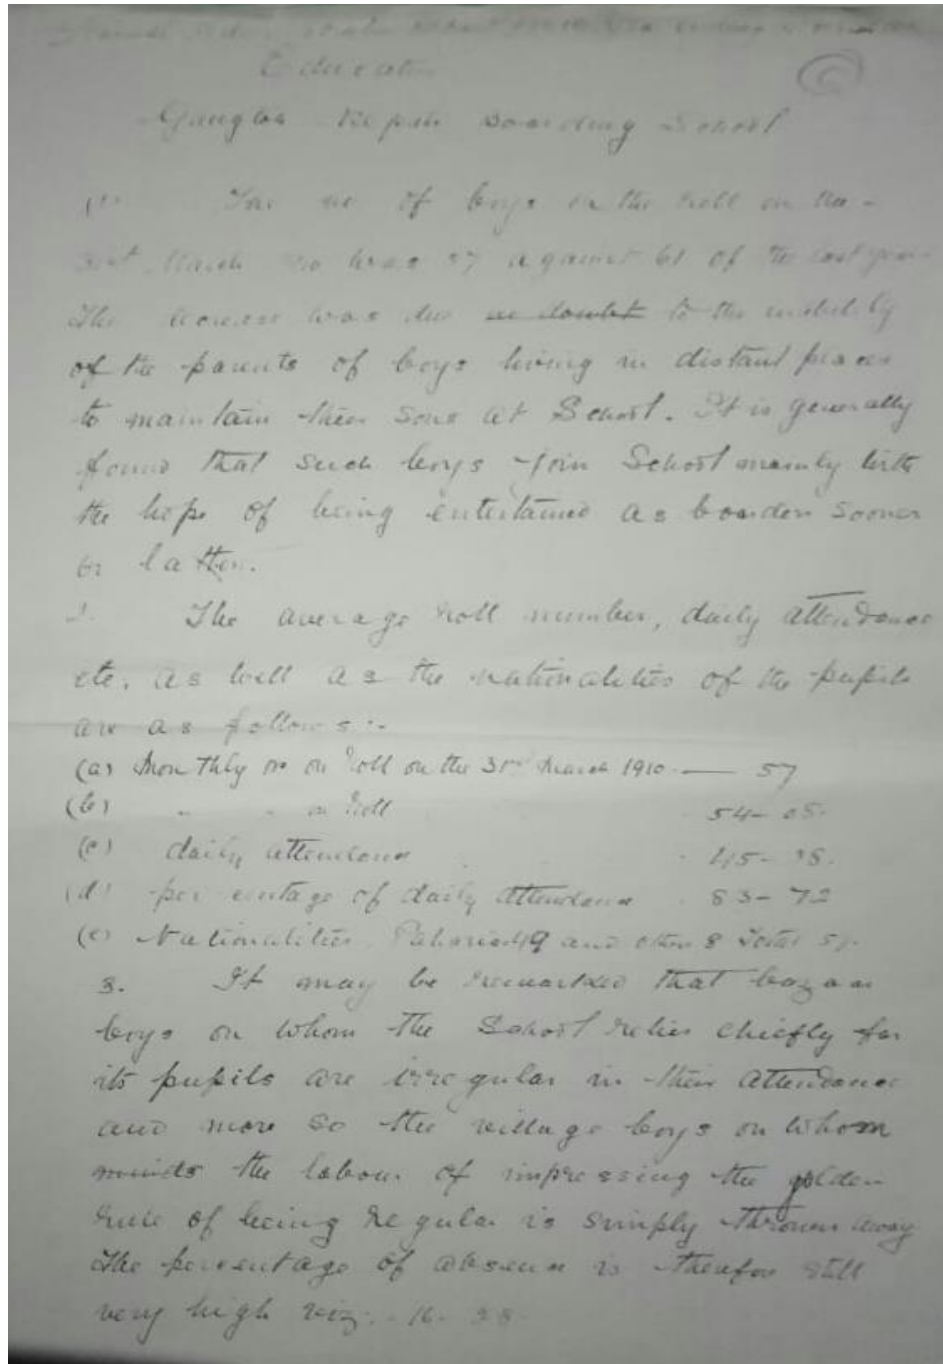 Education
6
Gangtok Nepali Boarding School
(1) The no of boys on the roll on the
31st March was 57 against 61 of the last year
The decrease was due no doubt to the inability
of the parents of boys living in distant places
to maintain their sons at School. It is generally
found that such boys join School mainly with
the hope of being entertained as boarders sooner
or latter.
2. The average roll number, daily attendance
etc. as well as the nationalities of the pupils
are as follows :-
(a) Monthly no on roll on the 31st March 1910 — 57
(b) " " on roll 54-05.
(c) daily attendance 45-
(d) percentage of daily attendance 83-72
(e) Nationalities Paharias 49 and others 8 Total 57.
3. It may be remarked that bazaar
boys on whom the School relies chiefly for
its pupils are irregular in their attendance
and more so the village boys on whom
minds the labour of impressing the golden
rule of being regular is simply thrown away
The percentage of absence is therefore still
very high viz. 16-28